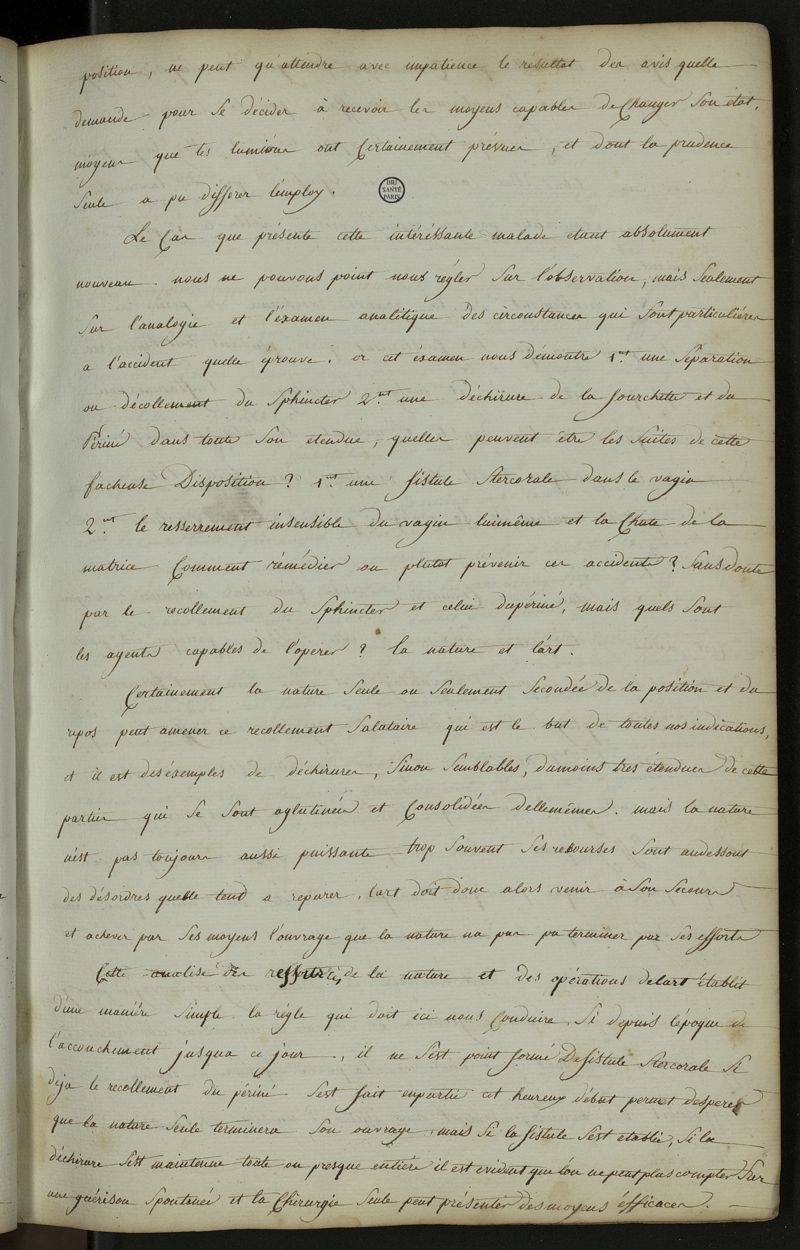 position, ne peut qu'attendre avec impatience le résultat des avis quelle
demande pour se décider à recevoir les moyens capables de Changer son état,
moyens que tes lumières ont Certainement prévues, et dont la prudence
seule a pu differer l'employ.
BIU
SANTÉ
PARIS
Le Cas que présente cette intéréssante malade etant absolument
nouveau. nous ne pouvons point nous régler sur l'observation, mais seulement
sur l'analogie et l'éxamen analitique des circonstances qui sont particulières
a l'accident quelle éprouve. or cet éxamen nous démontre 1.nt une séparation
ou décollement du Sphincter 2.nt une déchirure de la fourchette et du
Périné dans toute son etendue, quelles peuvent être les suites de cette
facheuse Disposition? 1.nt une fistule stercorale dans le vagin
2.nt le resserrement insensible du vagin luimême et la Chute de la
matrice Comment rémédier ou plutot prévenir ces accidents? sans doute
par le recollement du Sphincter et celui dupériné, mais quels sont
les agents capables de l'operer? la nature et l'art.
Certainement la nature seule ou seulement secondée de la position et du
repos peut amener ce recollement salutaire qui est le but de toutes nos indications,
et il est des éxemples de déchirures, sinon semblables, dumoins tres étendues de cette
partie qui se sont aglutinées et Consolidées dellemêmes. mais la nature
n'est pas toujours aussi puissante trop souvent ses resources sont audessous
des désordres quelle tend a reparer, l'art doit donc alors venir à son secours
et achever par ses moyens l'ouvrage que la nature na pas pu terminer par ses efforts
Cette analise des ressources de la nature et des opérations de l'art établit
d'une manière simple la régle qui doit ici nous Conduire. Si depuis l'époque de
l'accouchement jusqua ce jour, il ne s'est point formé De fistule stercorale si
déja le recollement du périné s'est fait enpartie cet heureux début permet desperer
que la nature seule terminera son ouvrage mais si la fistule s'est etablie, si la
déchirure s'est maintenue toute ou presque entière il est evident que l'on ne peut plus compter sur
une guérison spontanée et la Chirurgie seule peut présenter des moyens éfficaces.